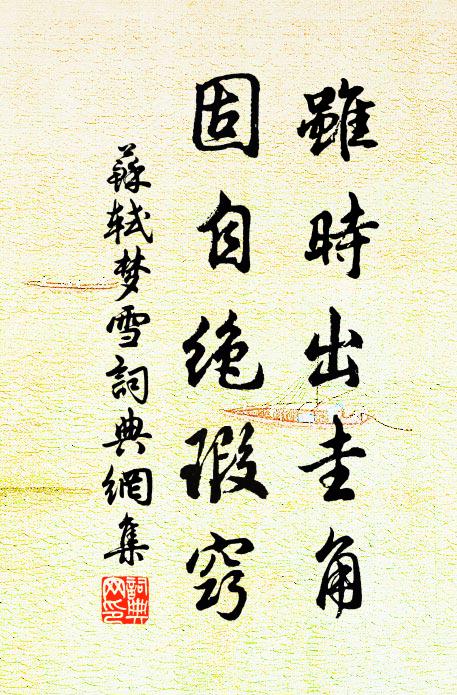 雖時出圭角
固自絶瑕竅
蘇軾梦雪詞典網集
詞典
网印